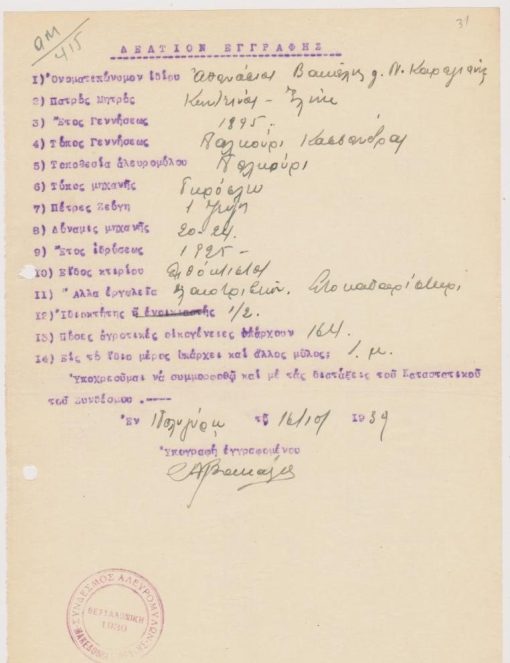 31
ΑΜ/415
ΔΕΛΤΙΟΝ ΕΓΓΡΑΦΗΣ
1) Ὀνοματεπώνυμον ἰδίου Ἀθανάσιος
2) Πατρός Μητρός
3) Ἔτος Γεννήσεως 1895.
4) Τόπος Γεννήσεως Παλιούρι Κασσάνδρας
5) Τοποθεσία ἀλευρομύλου Παλιούρι
6) Τύπος μηχανῆς
7) Πέτρες Ζεύγη 1 ζεύγη
8) Δύναμις μηχανῆς 20-24.
9) Ἔτος ἱδρύσεως 1925-
10) Εἶδος κτιρίου Λιθόκτιστον
11) Ἄλλα ἐργαλεῖα
12) Ἰδιοκτήτης ἤ ἐνοικιαστής 1/2.
13) Πόσες ἀγροτικές οἰκογένειες ὑπάρχουν 164.
14) Εἰς τό ἴδιο μέρος ὑπάρχει καί ἄλλος μύλος; 1. μ.
Ὑποχρεοῦμαι νά συμμορφωθῶ καί μέ τάς διατάξεις τοῦ Καταστατικοῦ
τοῦ Συνδέσμου .----
Ἐν Πολυγύρῳ τῇ 16/10/ 1939
Ὑπογραφή ἐγγραφομένου
ΣΥΝΔΕΣΜΟΣ ΑΛΕΥΡΟΜΥΛΩΝ
ΘΕΣΣΑΛΟΝΙΚΗ